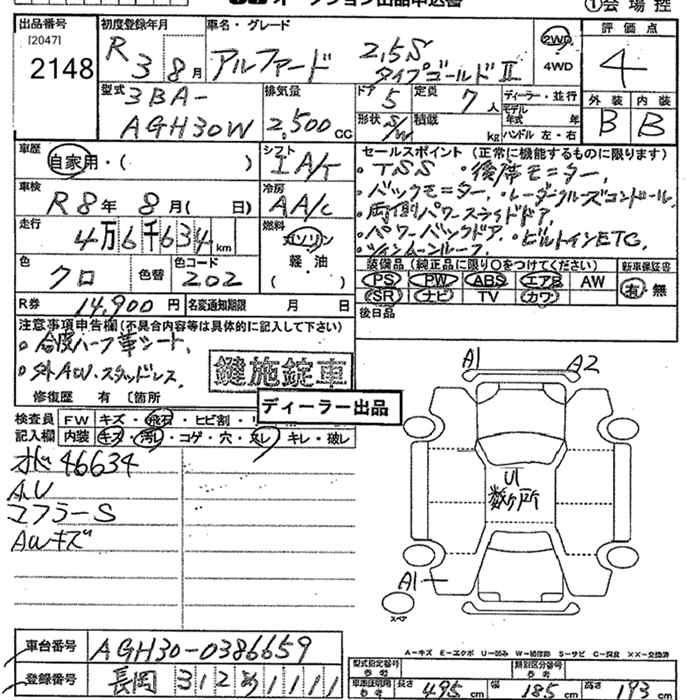 オークション出品申込書
①会場控
出品番号
[2047]
2148
初度登録年月
R 3 8月
車名・グレード
アルファード 2.5S
タイプゴールドⅡ
2WD
4WD
評価点
4
外装 内装
B B
型式
3BA-
AGH30W
排気量
2,500cc
ドア
5
定員
7人
形状 S/W
積載 kg
ディーラー・並行
モデル年式 年
ハンドル 左・右
車歴
自家用・( )
シフト
IA/T
車検
R8年 8月( 日)
冷房
AA/c
走行
4万6千634km
燃料
ガソリン
軽・油
( )
色
クロ
色替
色コード
202
R券
14,900円
名変通知期限 月 日
セールスポイント (正常に機能するものに限ります)
・TSS ・後席モニター、
・バックモニター、・レーダークルーズコントロール、
・両側パワースライドドア、
・パワーバックドア、・ビルトインETC、
・ツインムーンルーフ、
装備品(純正品に限り〇をつけてください)
新車保証書
PS PW ABS エアB AW
SR ナビ TV カワ
有・無
後日品
注意事項申告欄(不具合内容等は具体的に記入して下さい)
・合皮ハーフ革シート、
・外AW・スタッドレス、
鍵施錠車
修復歴 有 〔箇所
ディーラー出品
検査員
記入欄
FW キズ・飛石・ヒビ割・リ
内装 キズ・汚レ・コゲ・穴・スレ・キレ・破レ
46634
A,U
マフラーS
AWキズ
A1 A2
U1
数ヶ所
A1
スペア
A-キズ E-エクボ U-凹み W-補修跡 S-サビ C-腐食 XX-交換済
車台番号
AGH30-0386659
登録番号
長岡 312 1111
型式指定番号
参考
類別区分番号
参考
車庫証明用
参考
長さ 495cm 幅 185cm 高さ 193cm